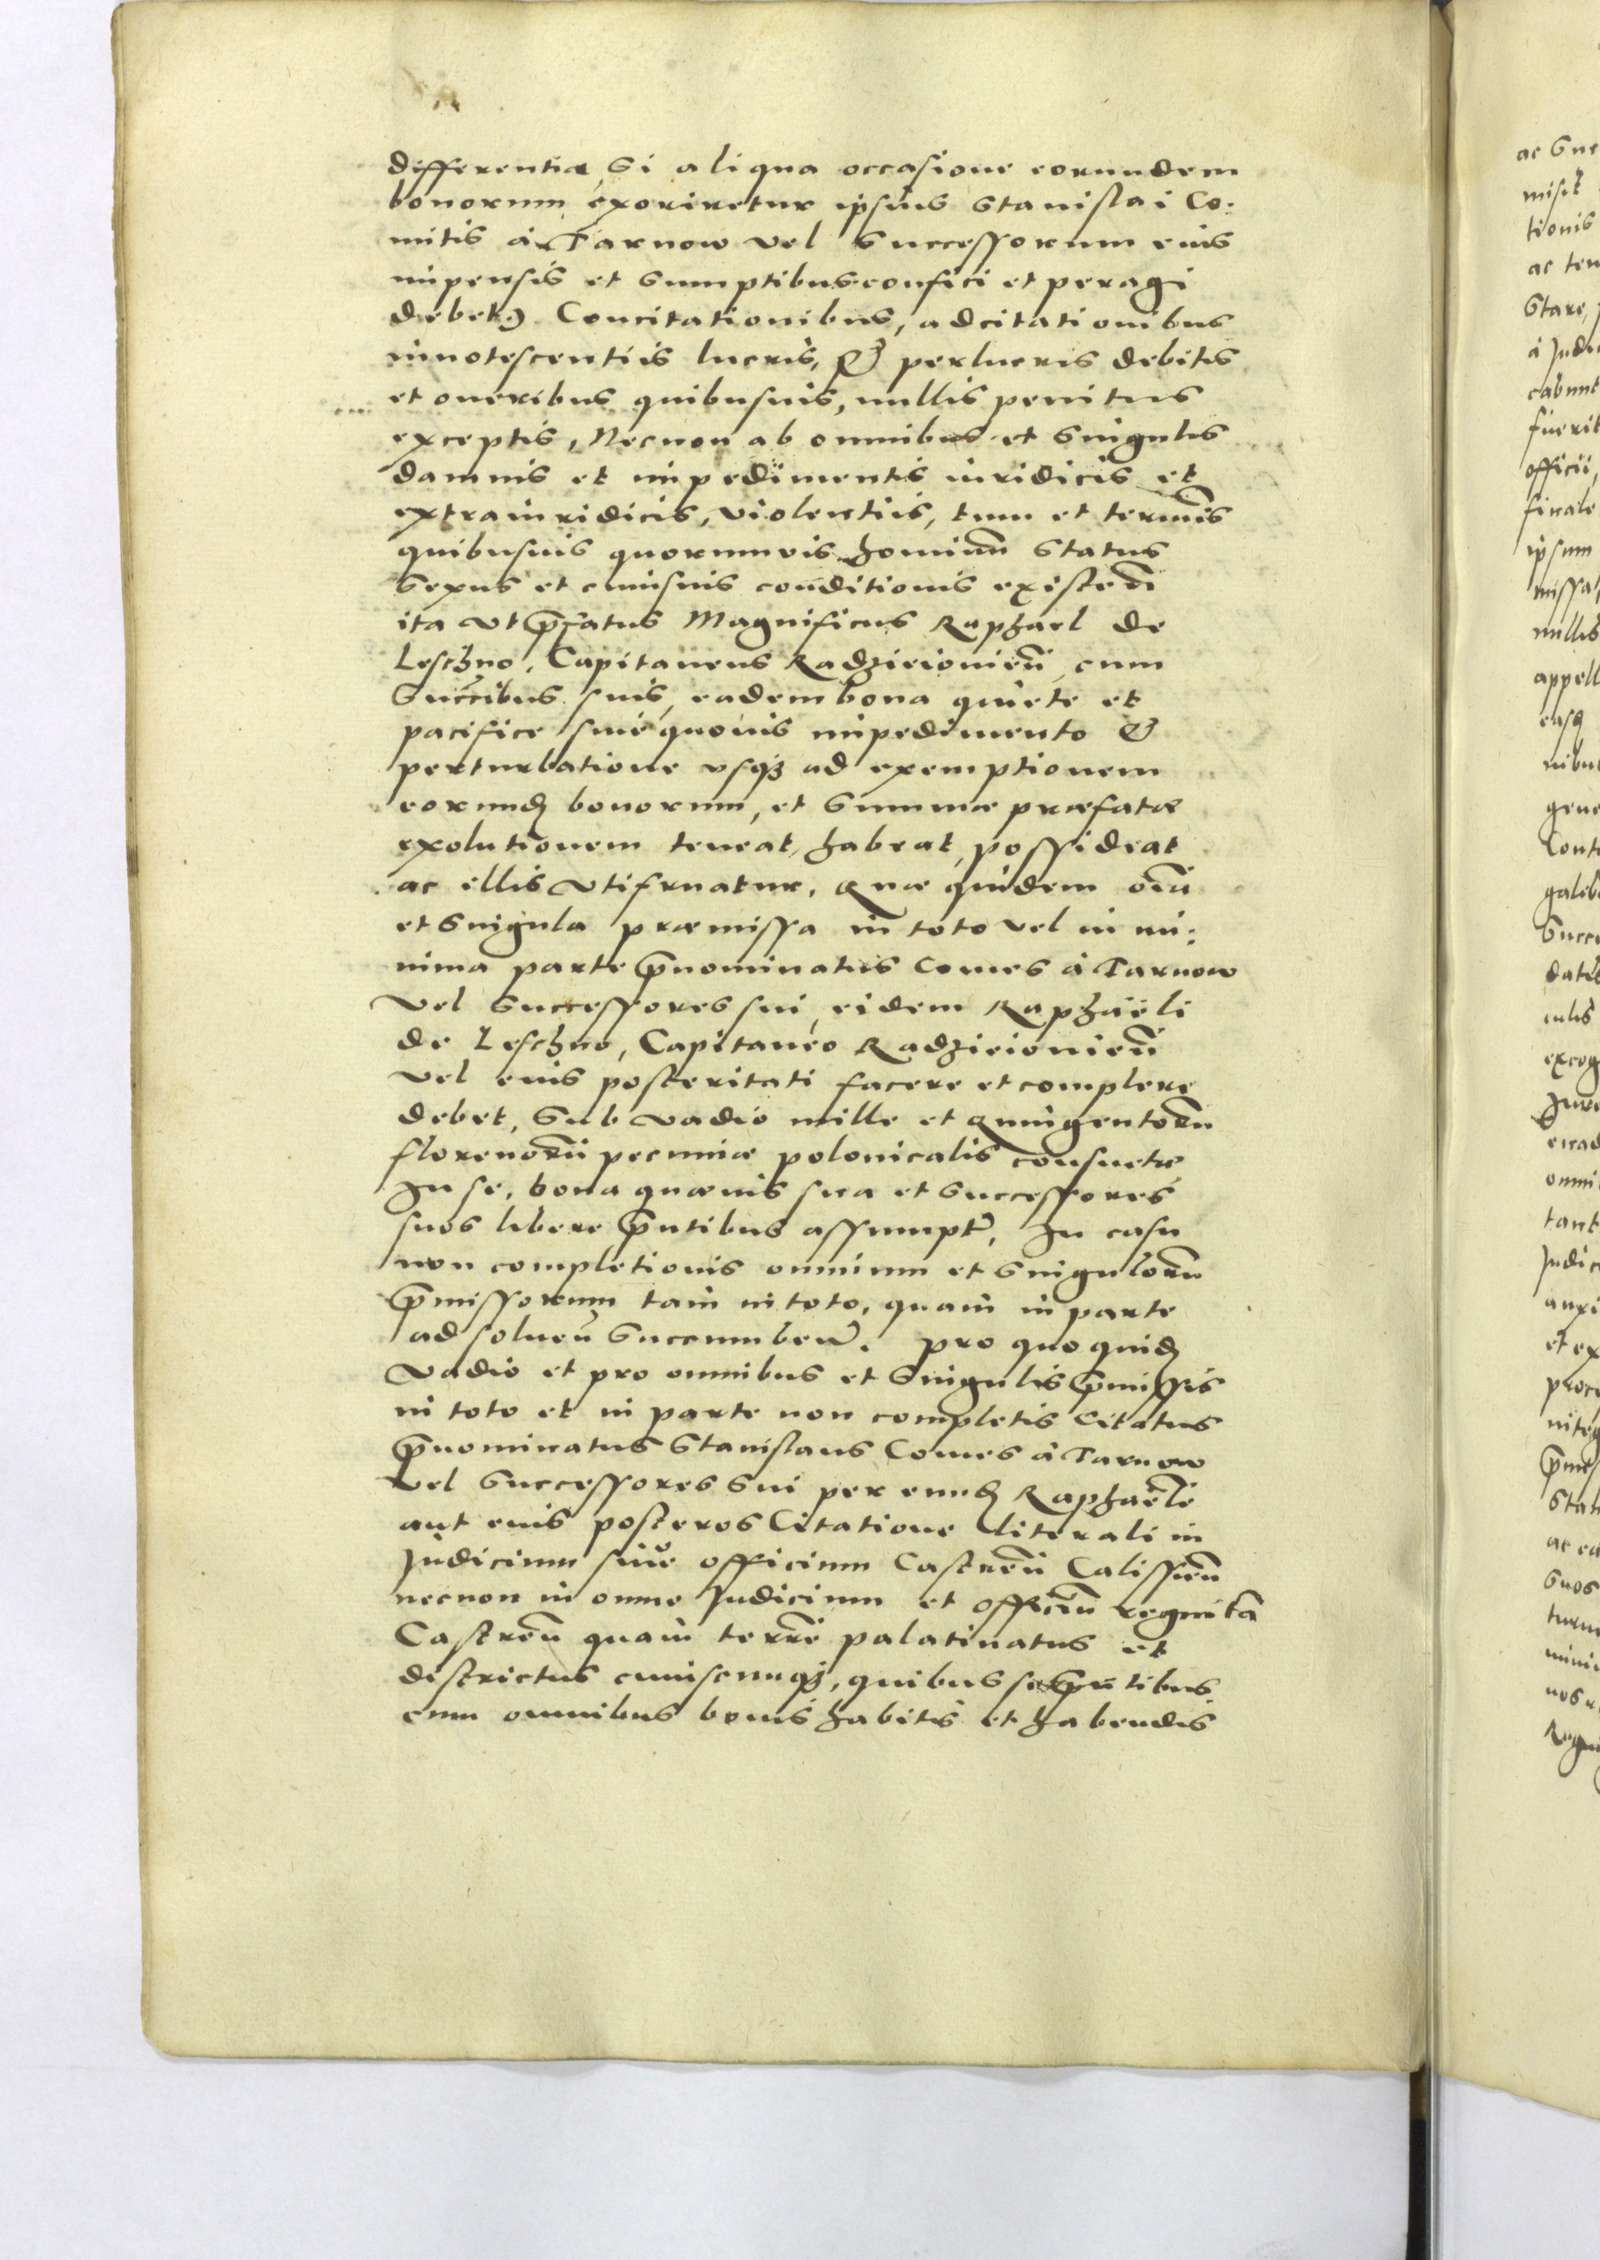 differentiæ, Si aliqua occasione eorundem
bonorum exoriretur ipsius Stanislai Co-
mitis à Tarnow vel Successorum eius
impensis et Sumptibus confici et peragi
debet) Concitationibus, adcitationibus
innotescentiis lucris, & perlucris debitis
et oneribus quibusuis, nullis penitus
exceptis, Necnon ab omnibus et Singulis
damnis et impedimentis iuridicis et
extraiuridicis, violentiis, tum et termĩs
quibusuis quorumvis hominũ Status
Sexus et cuiusuis conditionis existeñ
ita vt p̃fatus Magnificus Raphael de
Leschno, Capitaneus Radzieiovieñ cum
Succ̃ibus suis, eadem bona quiete et
pacifice sine quouis impedimento &
perturbatione vsq₃ ad exemptionem
eorund̃ bonorum, et Summæ præfatæ
exolutionem teneat, habeat, possideat
ac illis vtifruatur. Quæ quidem oĩa
et Singula præmissa in toto vel in mi-
nima parte p̃nominatus Comes à Tarnow
vel Successores sui, eidem Raphaëli
de Leschno, Capitaneo Radzieiovieñ
vel eius posteritati facere et complere
debet, Sub vadio mille et Quingentorũ
florenorũ pecuniæ polonicalis consuetæ
In se, bona quæuis sua et Successores
suos libere p̃ntibus assumpt̃, In casu
non completionis omnium et Singulorũ
p̃missorum tam in toto, quam in parte
ad solueñ Succumbeñ. Pro quo quid̃
vadio et pro omnibus et Singulis p̃missis
in toto et in parte non completis Citatus
p̃nominatus Stanislaus Comes à Tarnow
vel Successores Sui per eund̃ Raphaëlẽ
aut eius posteros Citatione literali in
Judicium siue officium Castreñ Calissieñ
necnon in omne Judicium et officiũ regni tã
Castreñ quam terrẽ palatinatus et
districtus cuiuscunq₃, quibus se p̃ntibus
cum omnibus bonis habitis et habendis